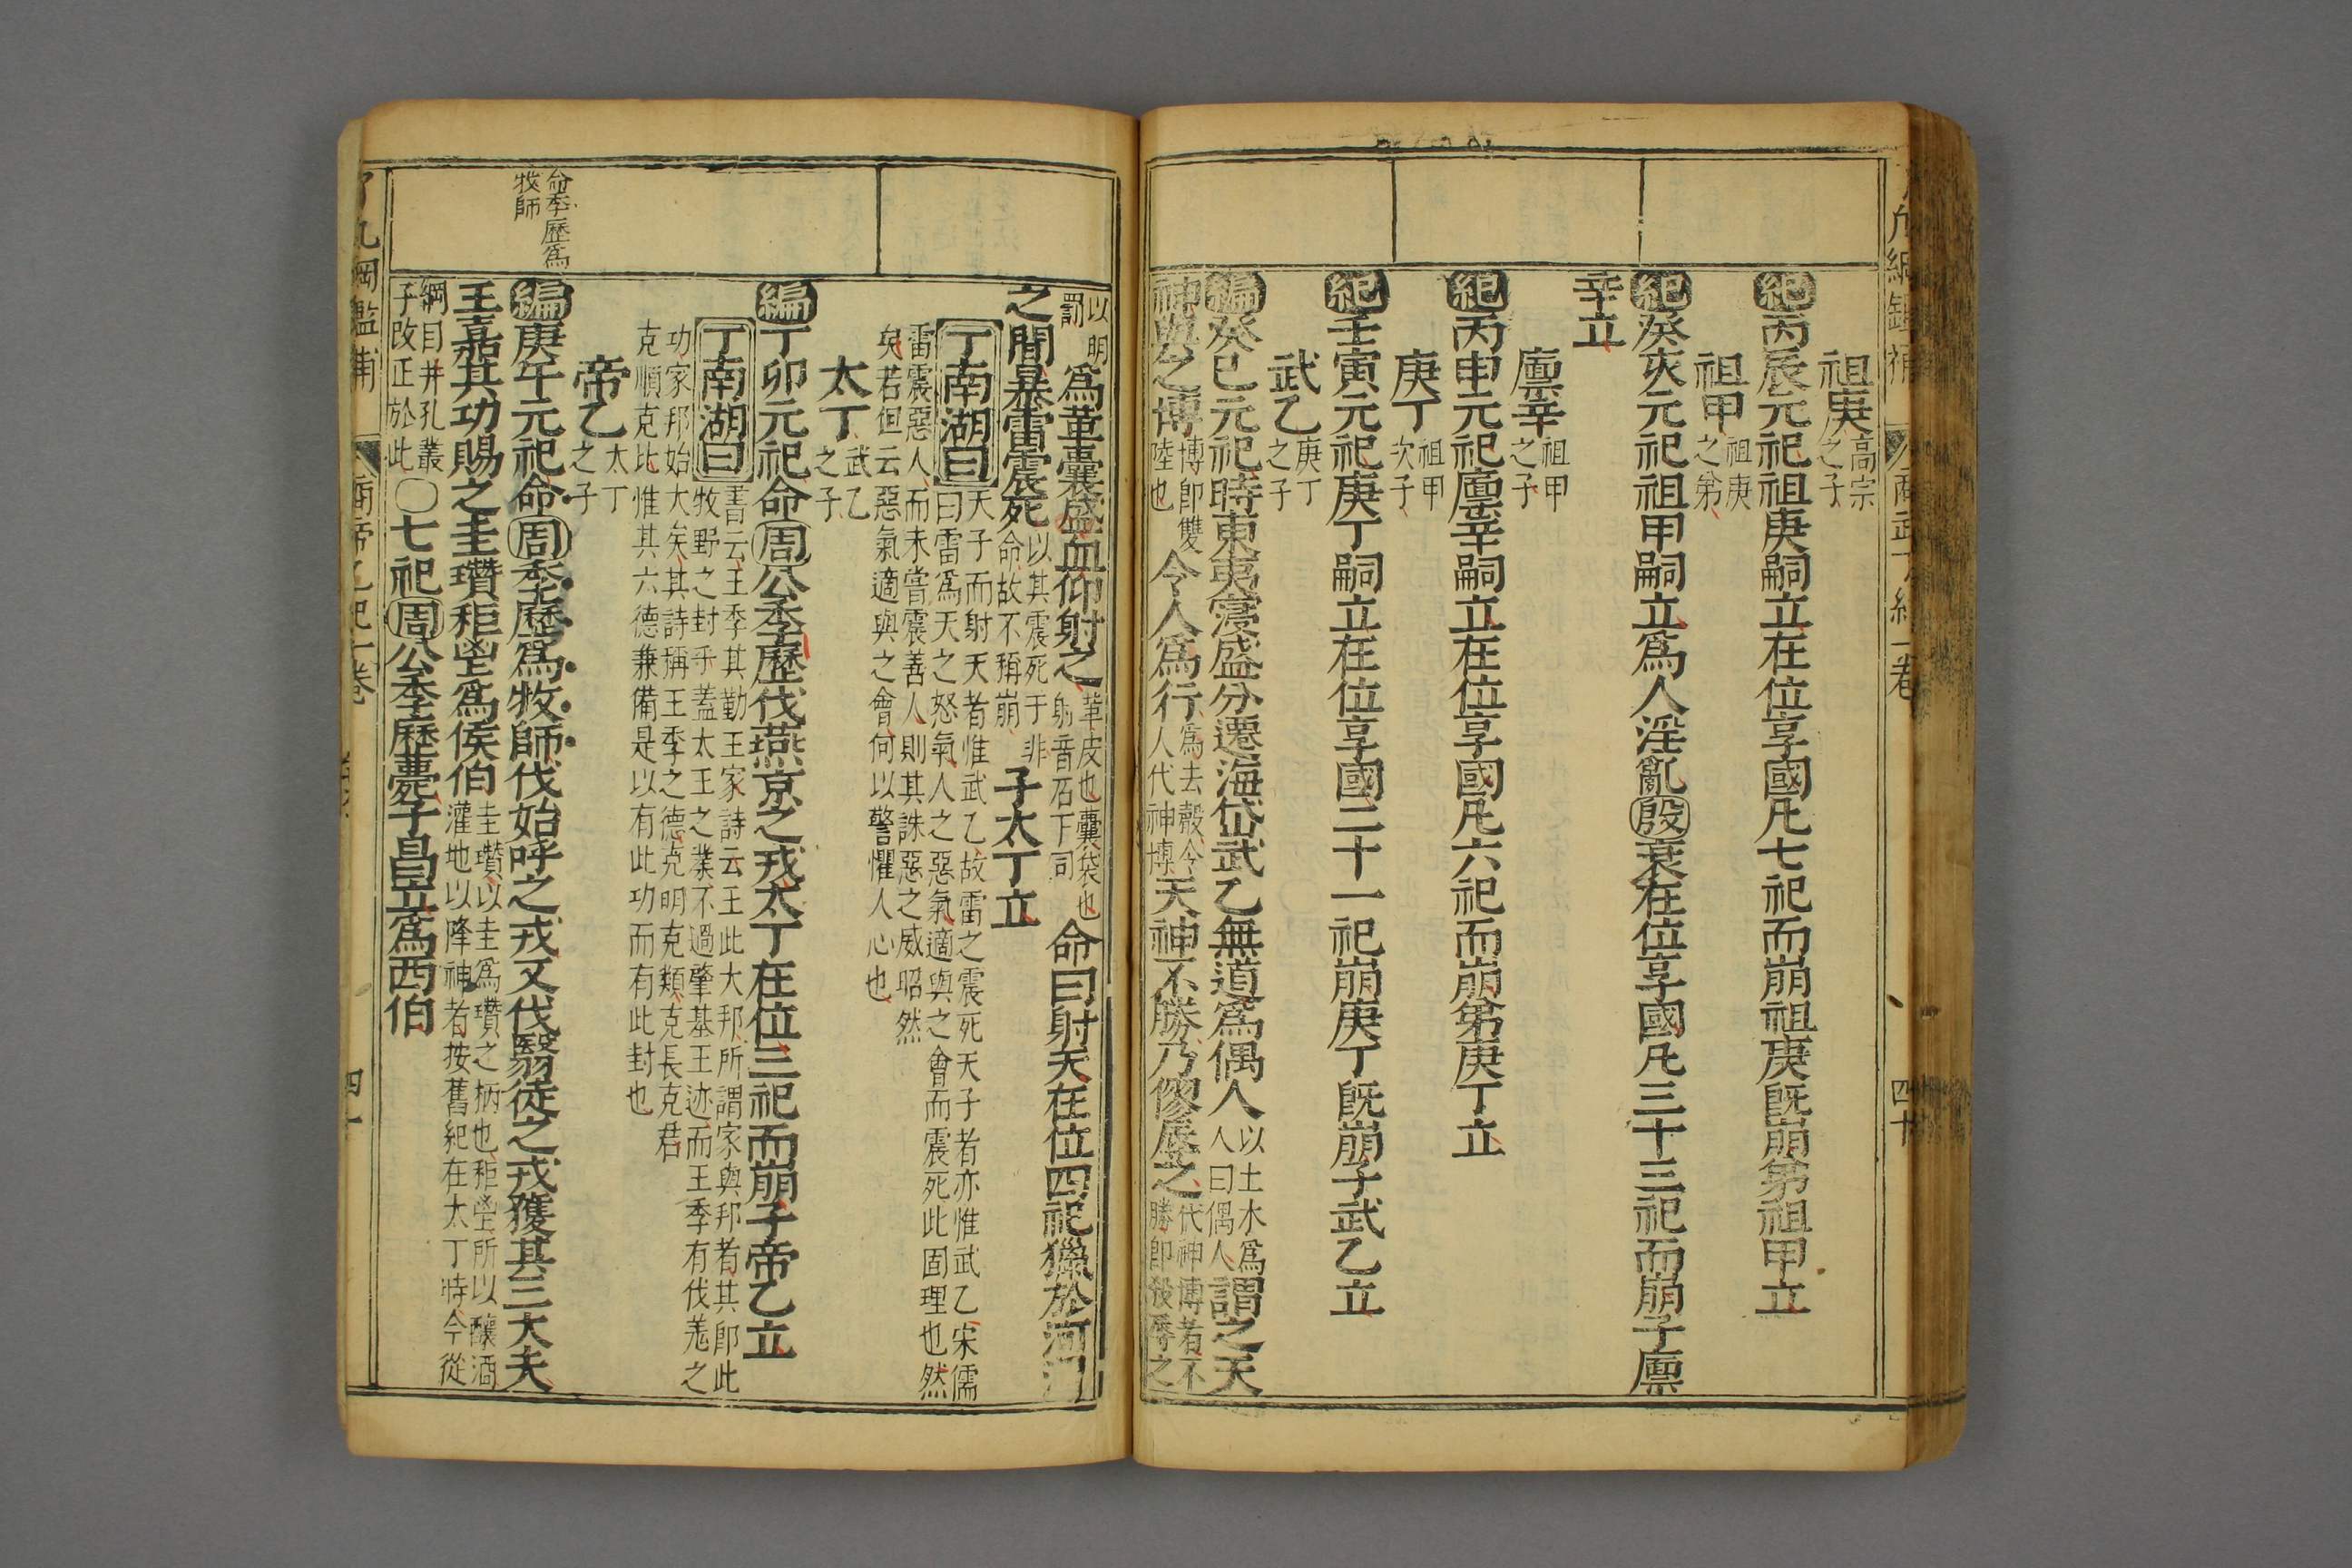 祖庚高宗之子
紀丙辰元祀祖庚嗣立在位享國凡七祀而崩祖庚既崩弟祖甲立
祖甲祖庚之弟
紀癸亥元祀祖甲嗣立爲人淫亂殷衰在位享國凡三十三祀而崩子廪
辛立
廪辛祖甲之子
紀丙申元祀廪辛嗣立在位享國凡六祀而崩弟庚丁立
庚丁祖甲次子
紀壬寅元祀庚丁嗣立在位享國二十一祀崩庚丁既崩子武乙立
武乙庚丁之子
編癸巳元祀時東夷寖盛分遷海岱武乙無道爲偶人以土木爲人曰偶人謂之天
神與之博博卽雙陸也令人爲行爲去殼令人代神博天神不勝乃僇辱之代神博者不勝卽殺辱之
以明罰
爲革囊盛血仰射之革皮也囊袋也射音石下同命曰射天在位四祀獵於河渭
之間暴雷震死以其震死于非命故不稱崩子太丁立
丁南湖曰天子而射天者惟武乙故雷之震死天子者亦惟武乙宋儒
曰雷爲天之怒氣人之惡氣適與之會而震死此固理也然
雷震惡人而未嘗震善人則其誅惡之威昭然
矣若但云惡氣適與之會何以警懼人心也
太丁武乙之子
編丁卯元祀命周公季歷伐燕京之戎太丁在位三祀而崩子帝乙立
丁南湖曰書云王季其勤王家詩云王此大邦所謂家與邦者其卽此
牧野之封乎蓋太王之業不過肇基王迹而王季有伐羗之
功家邦始大矣其詩稱王季之德克明克類克長克君
克順克比惟其六德兼備是以有此功而有此封也
帝乙太丁之子
命季歷爲牧師
編庚午元祀命周季歷爲牧師伐始呼之戎又伐翳徒之戎獲其三大夫
王嘉其功賜之圭瓚秬鬯爲侯伯圭瓚以圭爲瓚之柄也秬鬯所以釀酒灌地以降神者按舊紀在太丁時今從
綱目并孔叢子改正於此○七祀周公季歷薨子昌立爲西伯
商帝乙紀一卷
四十